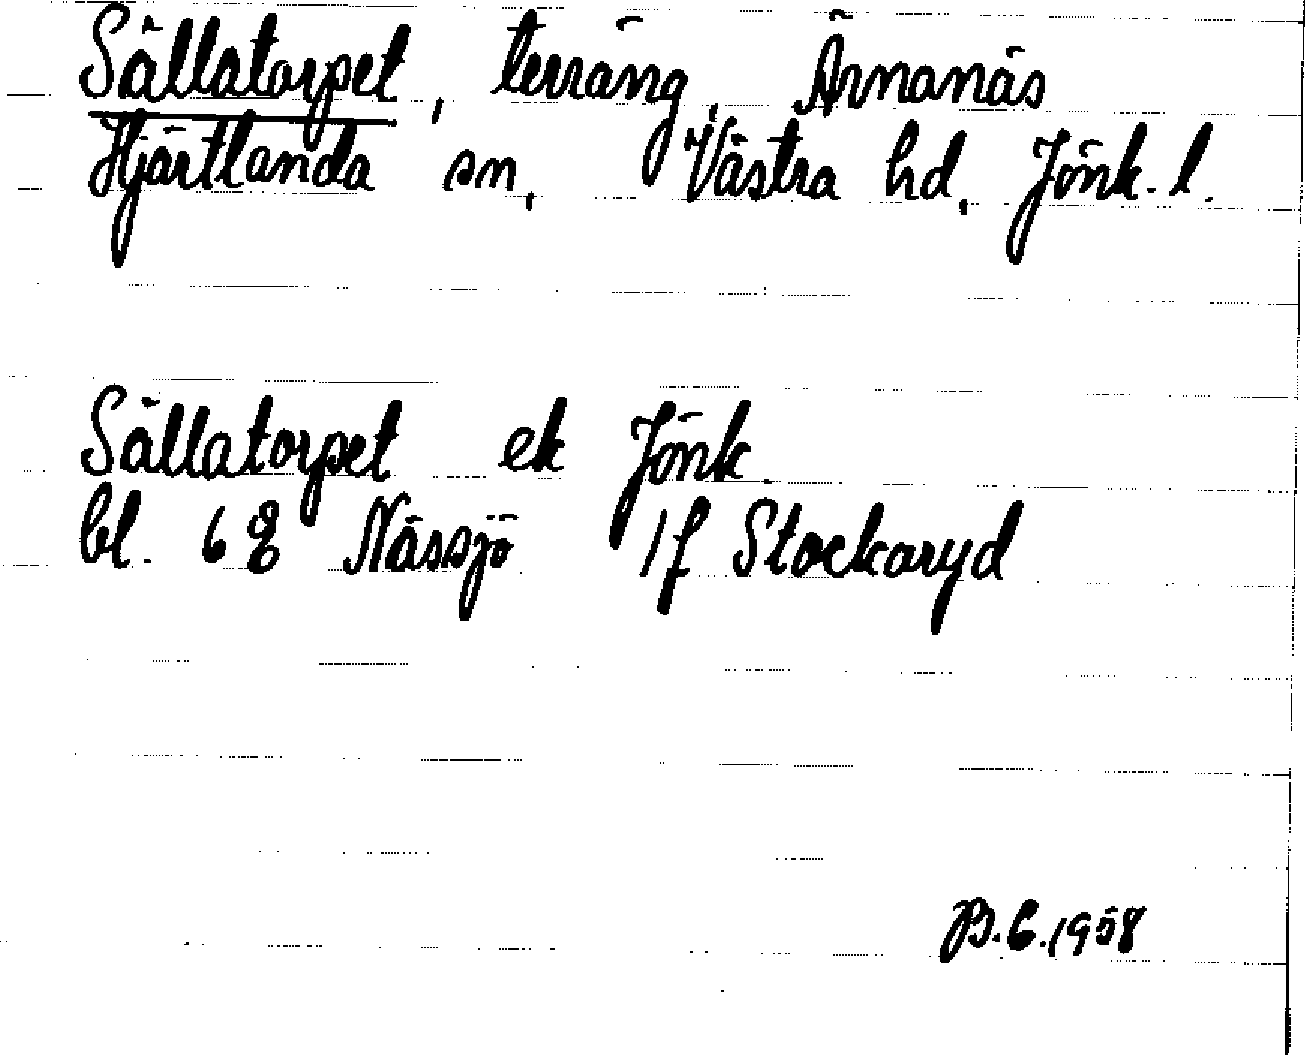 Sällatorpet, terräng, Ärnanäs
Hjärtlanda sn, Västra hd, Jönk. l.
Sällatorpet ek Jönk.
bl. 6 E Nässjö 1f Stockaryd
B.C. 1958